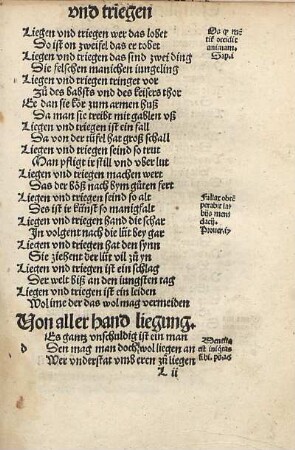 vnd triegen
Liegen vnd triegen wer das lobet
So ist on zweifel das er tobet
Liegen vnd triegen das sind zwei ding
Die felschen manichen iungeling
Liegen vnd triegen tringet vor
Zů des babsts vnd des keisers thor
Ee dan sie kör zum armen huß
Da man sie treibt mit gablen vß
Liegen vnd triegen ist ein fall
Da von der tüfel hat groß schall
Liegen vnd triegen seind so trut
Man pfligt ir still vnd vber lut
Liegen vnd triegen machen wert
Das der böß nach bym gůten fert
Liegen vnd triegen seind so alt
Des ist ir künst so manigfalt
Liegen vnd triegen hand die schar
In volgent nach die lüt bey gar
Liegen vnd triegen hat den synn
Sie ziehent der lüt vil zů yn
Liegen vnd triegen ist ein schlag
Der welt biß an den iungsten tag
Liegen vnd triegen ist ein leiden
Wol ime der das wol mag vermeiden
Von aller hand liegung.
Es gantz vnschuldig ist ein man
Den mag man doch wol liegen an
Wer vnderstat vmb eren zů liegen
L ii
occidit
animam.
Sapiẽ